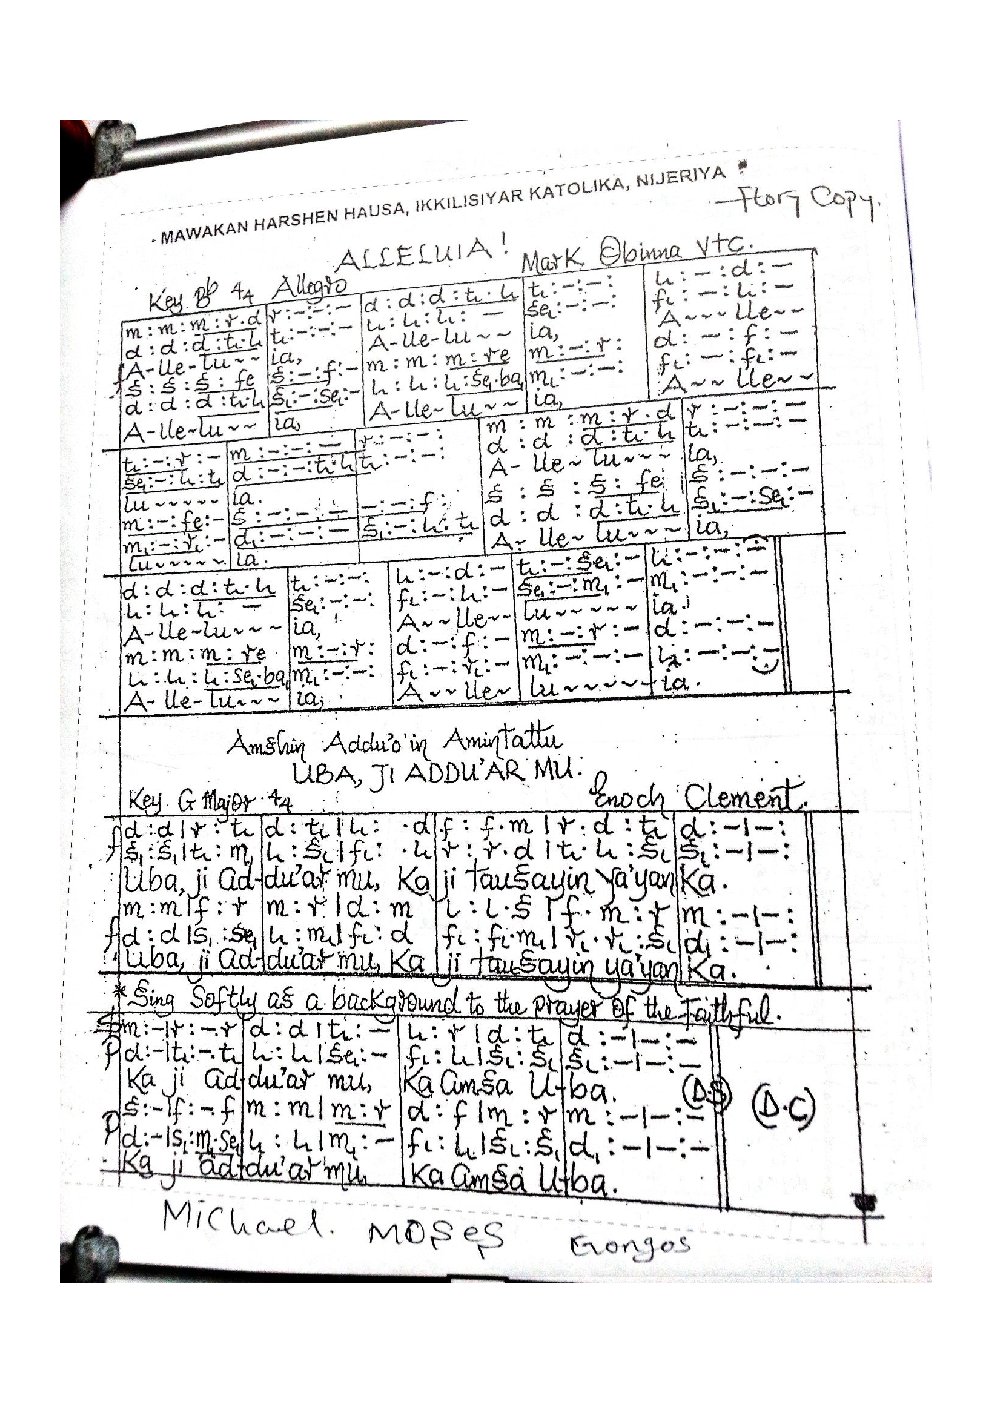 MAWAKAN HARSHEN HAUSA, IKKILISIYAR KATOLIKA, NIJERIYA
Copy.
ALLELUIA!
Mark Obinna Vtc.
Key Bb 4/4 Allegro
m : m : m : r . d | r : - : - : - | d : d : d : t₁ : l₁ | t₁ : - : - : | l₁ : - : d : -
d : d : d : t₁ . l₁ | t₁ : - : - : - | l₁ : l₁ : l₁ : - | se₁ : - : - : | f₁ : - : l₁ : -
A-lle-lu~~ | ia, | A-lle-lu~ | ia, | A~~~lle~~
f s : s : s : fe | s : - : f : - | m : m : m : re | m : - : r : | d : - : f : -
d : d : d : t₁ . l₁ | s₁ : - : se₁ : - | l₁ : l₁ : l₁ : se₁ . ba₁ | m₁ : - : - : | f₁ : - : f₁ : -
A-lle-lu~~ | ia, | A-lle-lu~~ | ia, | A~~lle~~
t₁ : - : r : - | m : - : - : - | r : - : - : | m : m : m : r . d | r : - : - : -
se₁ : - : l₁ : t₁ | d : - : - : t₁ : l₁ | t₁ : - : - : | d : d : d : t₁ . l₁ | t₁ : - : - : -
lu~~~~~ | ia. | A-lle~lu~~~ | ia,
m : - : fe : - | s : - : - : - | - : - : f : | s : s : s : fe | s : - : - : -
m₁ : - : r₁ : - | d₁ : - : - : - | s₁ : - : l₁ : t₁ | d : d : d : t₁ . l₁ | s₁ : - : se₁ : -
lu~~~~~ | ia. | A-lle~lu~~~ | ia,
d : d : d : t₁ . l₁ | t₁ : - : - : | l₁ : - : d : - | t₁ : - : se₁ : - | l₁ : - : - : -
l₁ : l₁ : l₁ : - | se₁ : - : - : | f₁ : - : l₁ : - | se₁ : - : m₁ : - | m₁ : - : - : -
A-lle-lu~~~ | ia, | A~~lle~ | lu~~~~~ | ia.
m : m : m : re | m : - : r : | d : - : f : - | m : - : r : - | d : - : - : -
l₁ : l₁ : l₁ : se₁ . ba₁ | m₁ : - : - : | f₁ : - : r₁ : - | m₁ : - : - : - | l₁ : - : - : -
A-lle-lu~~~ | ia, | A~~lle~ | lu~~~~~ | ia.
Amshin Addu'o'in Amintattu
UBA, JI ADDU'AR MU.
Key G Major 4/4 Enoch Clement.
f d : d | r : t₁ | d : t₁ | l₁ : . d | f : f . m | r . d : t₁ | d : - | - :
s₁ : s₁ | t₁ : m₁ | l₁ : s₁ | f₁ : . l₁ | r : r . d | t₁ . l₁ : s₁ | s₁ : - | - :
Uba, ji ad-du'ar mu, Ka ji tausayin ya'yan Ka.
m : m | f : r | m : r | d : m | l : l . s | f . m : r | m : - | - :
f d : d | s₁ : se₁ | l₁ : m₁ | f₁ : d | f₁ : f₁ . m₁ | r₁ . r₁ : s₁ | d₁ : - | - :
Uba, ji ad-du'ar mu, Ka ji tausayin ya'yan Ka.
*Sing softly as a background to the prayer of the Faithful.
m : - | r : - r | d : d | t₁ : - | l₁ : r | d : t₁ | d : - | - : -
p d : - | t₁ : - t₁ | l₁ : l₁ | se₁ : - | f₁ : l₁ | s₁ : s₁ | s₁ : - | - : -
Ka ji ad-du'ar mu, Ka amsa U-ba. (D.S) (D.C)
s : - | f : - f | m : m | m : r | d : f | m : r | m : - | - : -
p d : - | s₁ : m . se₁ | l₁ : l₁ | m₁ : - | f₁ : l₁ | s₁ : s₁ | d₁ : - | - : -
Ka ji ad-du'ar mu, Ka amsa U-ba.
Michael. MOSES Gongos